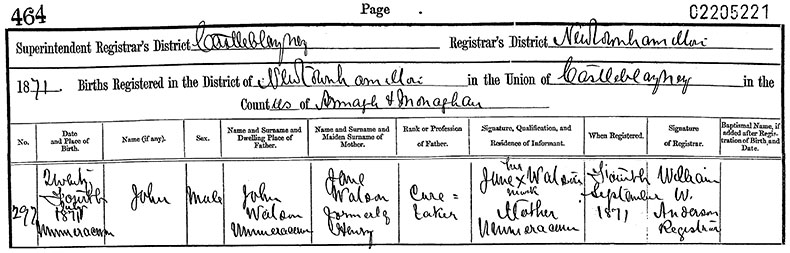 464 Page 02205221
Superintendent Registrar's District Castleblayney Registrar's District Newtownhamilton
1871. Births Registered in the District of Newtownhamilton in the Union of Castleblayney in the
Counties of Armagh & Monaghan
No. Date and Place of Birth. Name (if any). Sex. Name and Surname and Dwelling Place of Father. Name and Surname and Maiden Surname of Mother. Rank or Profession of Father. Signature, Qualification, and Residence of Informant. When Registered. Signature of Registrar. Baptismal Name, if added after Registration of Birth, and Date.
297
Twenty
Fourth
July
1871
John
Male
John
Watson
Jane
Watson
formerly
Henry
Care=
taker
her
Jane x Watson
mark
Mother
Fourth
September
1871
William
W.
Anderson
Registrar